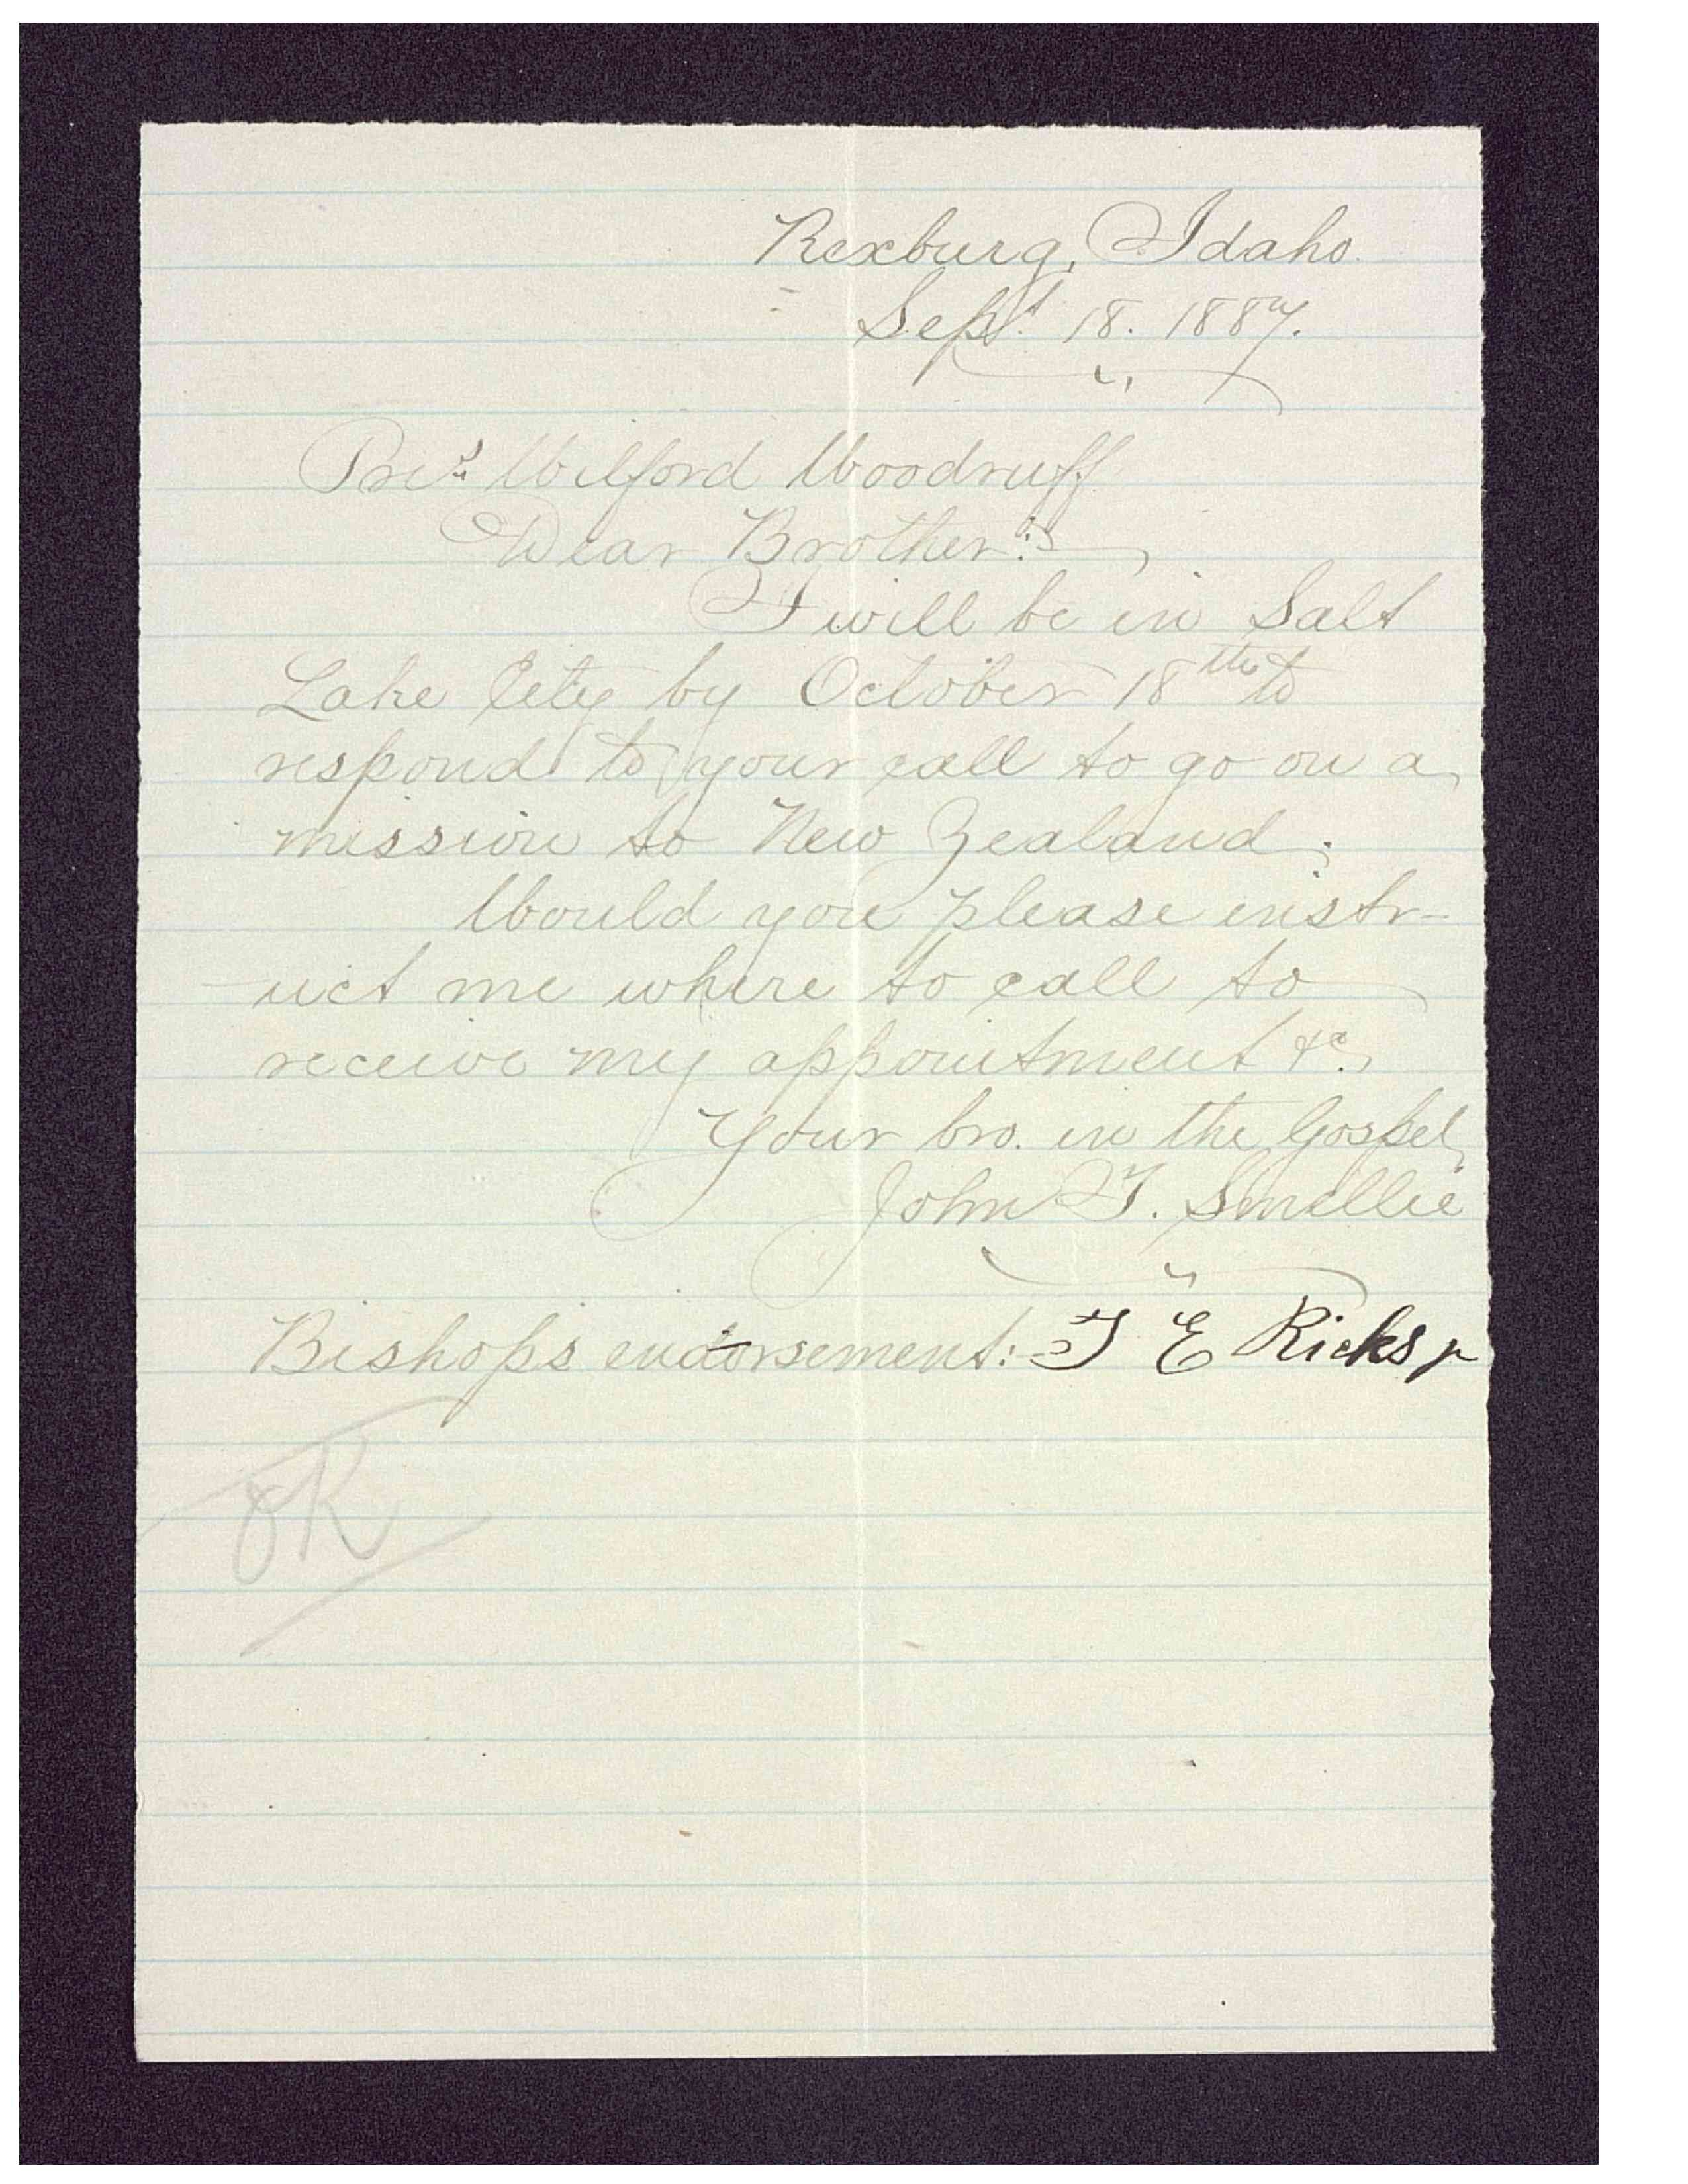 Rexburg, Idaho.
Sept. 18. 1887.
Pres. Wilford Woodruff
Dear Brother:
I will be in Salt
Lake City by October 18th to
respond to your call to go on a
mission to New Zealand.
Would you please instr-
-uct me where to call to
receive my appointment &c.
Your bro. in the Gospel,
John T. Smellie
Bishop's endorsement: T E Ricks jr
OK